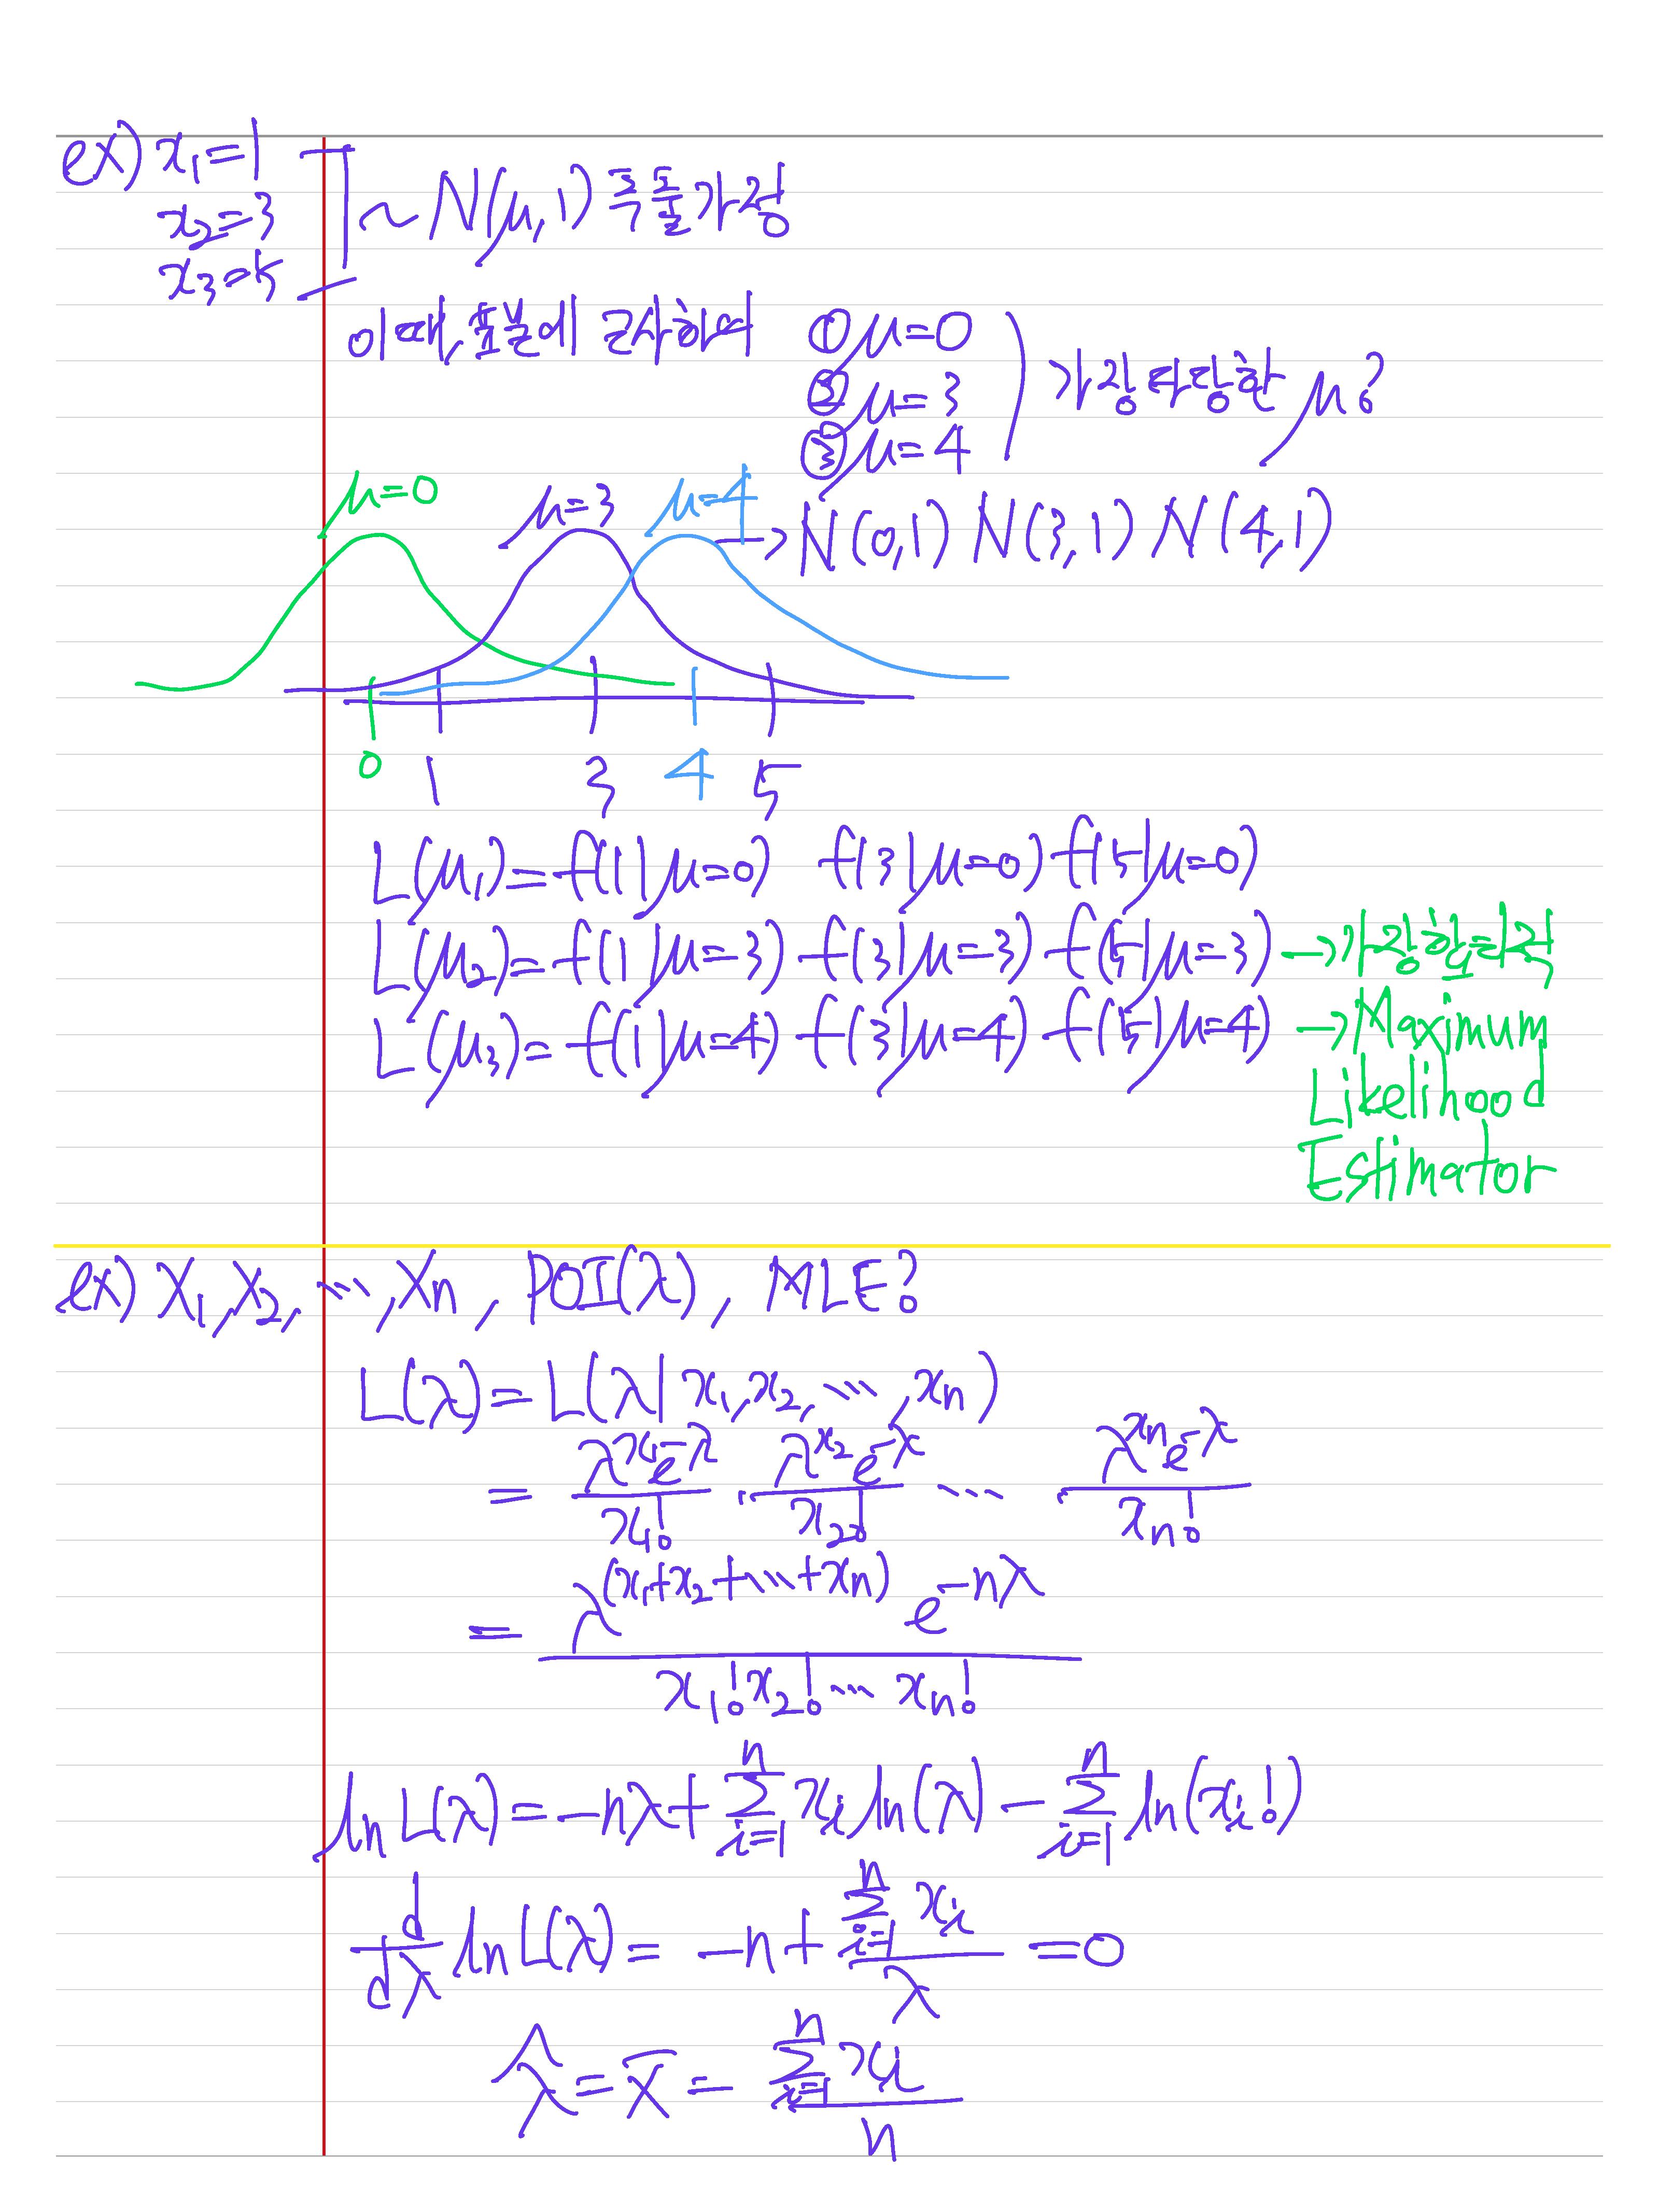 ex) x₁=1
x₂=3
x₃=5
~ N(μ, 1) 추출가정
이때, 표본에 근사하여 ① μ=0
② μ=3
③ μ=4
가장 타당한 μ?
μ=0 μ=3 μ=4
→ N(0,1) N(3,1) N(4,1)
0 1 3 4 5
L(μ₁)=f(1|μ=0) f(3|μ=0) f(5|μ=0)
L(μ₂)=f(1|μ=3) f(3|μ=3) f(5|μ=3) →
L(μ₃)=f(1|μ=4) f(3|μ=4) f(5|μ=4) → Maximum
Likelihood
Estimator
ex) X₁, X₂, ⋯, Xn, POI(λ), MLE?
L(λ) = L(λ| x₁, x₂, ⋯, xn)
= λ^x₁ e^-λ / x₁! · λ^x₂ e^-λ / x₂! ⋯ λ^xn e^-λ / xn!
= λ^(x₁+x₂+⋯+xn) e^-nλ / x₁! x₂! ⋯ xn!
ln L(λ) = -nλ + Σ_{i=1}^n xi ln(λ) - Σ_{i=1}^n ln(xi!)
d/dλ ln L(λ) = -n + Σ_{i=1}^n xi / λ = 0
λ̂ = x̄ = Σ_{i=1}^n xi / n